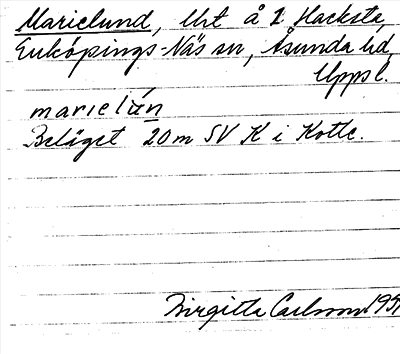 Marielund, lht å 2 Hacksta,
Enköpings-Näs sn, Åsunda hd,
Uppl.
marielún
Beläget 20 m SV K i Kotte.
Birgitta Carlsson